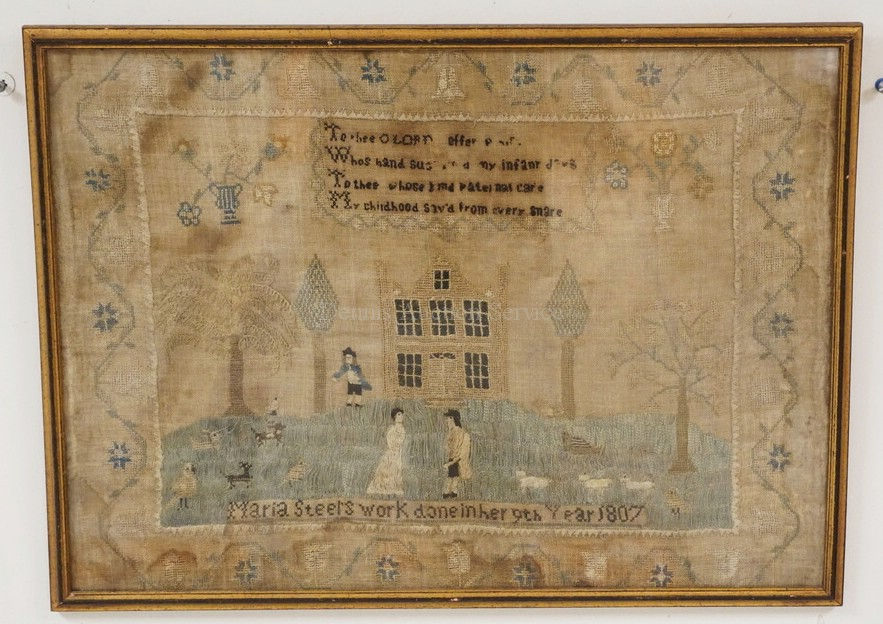 To thee O LORD offer
Whos hand my infant days
To thee whose kind paternal care
My childhood sav'd from every snare
Maria Steers work done in her 9th Year 1807